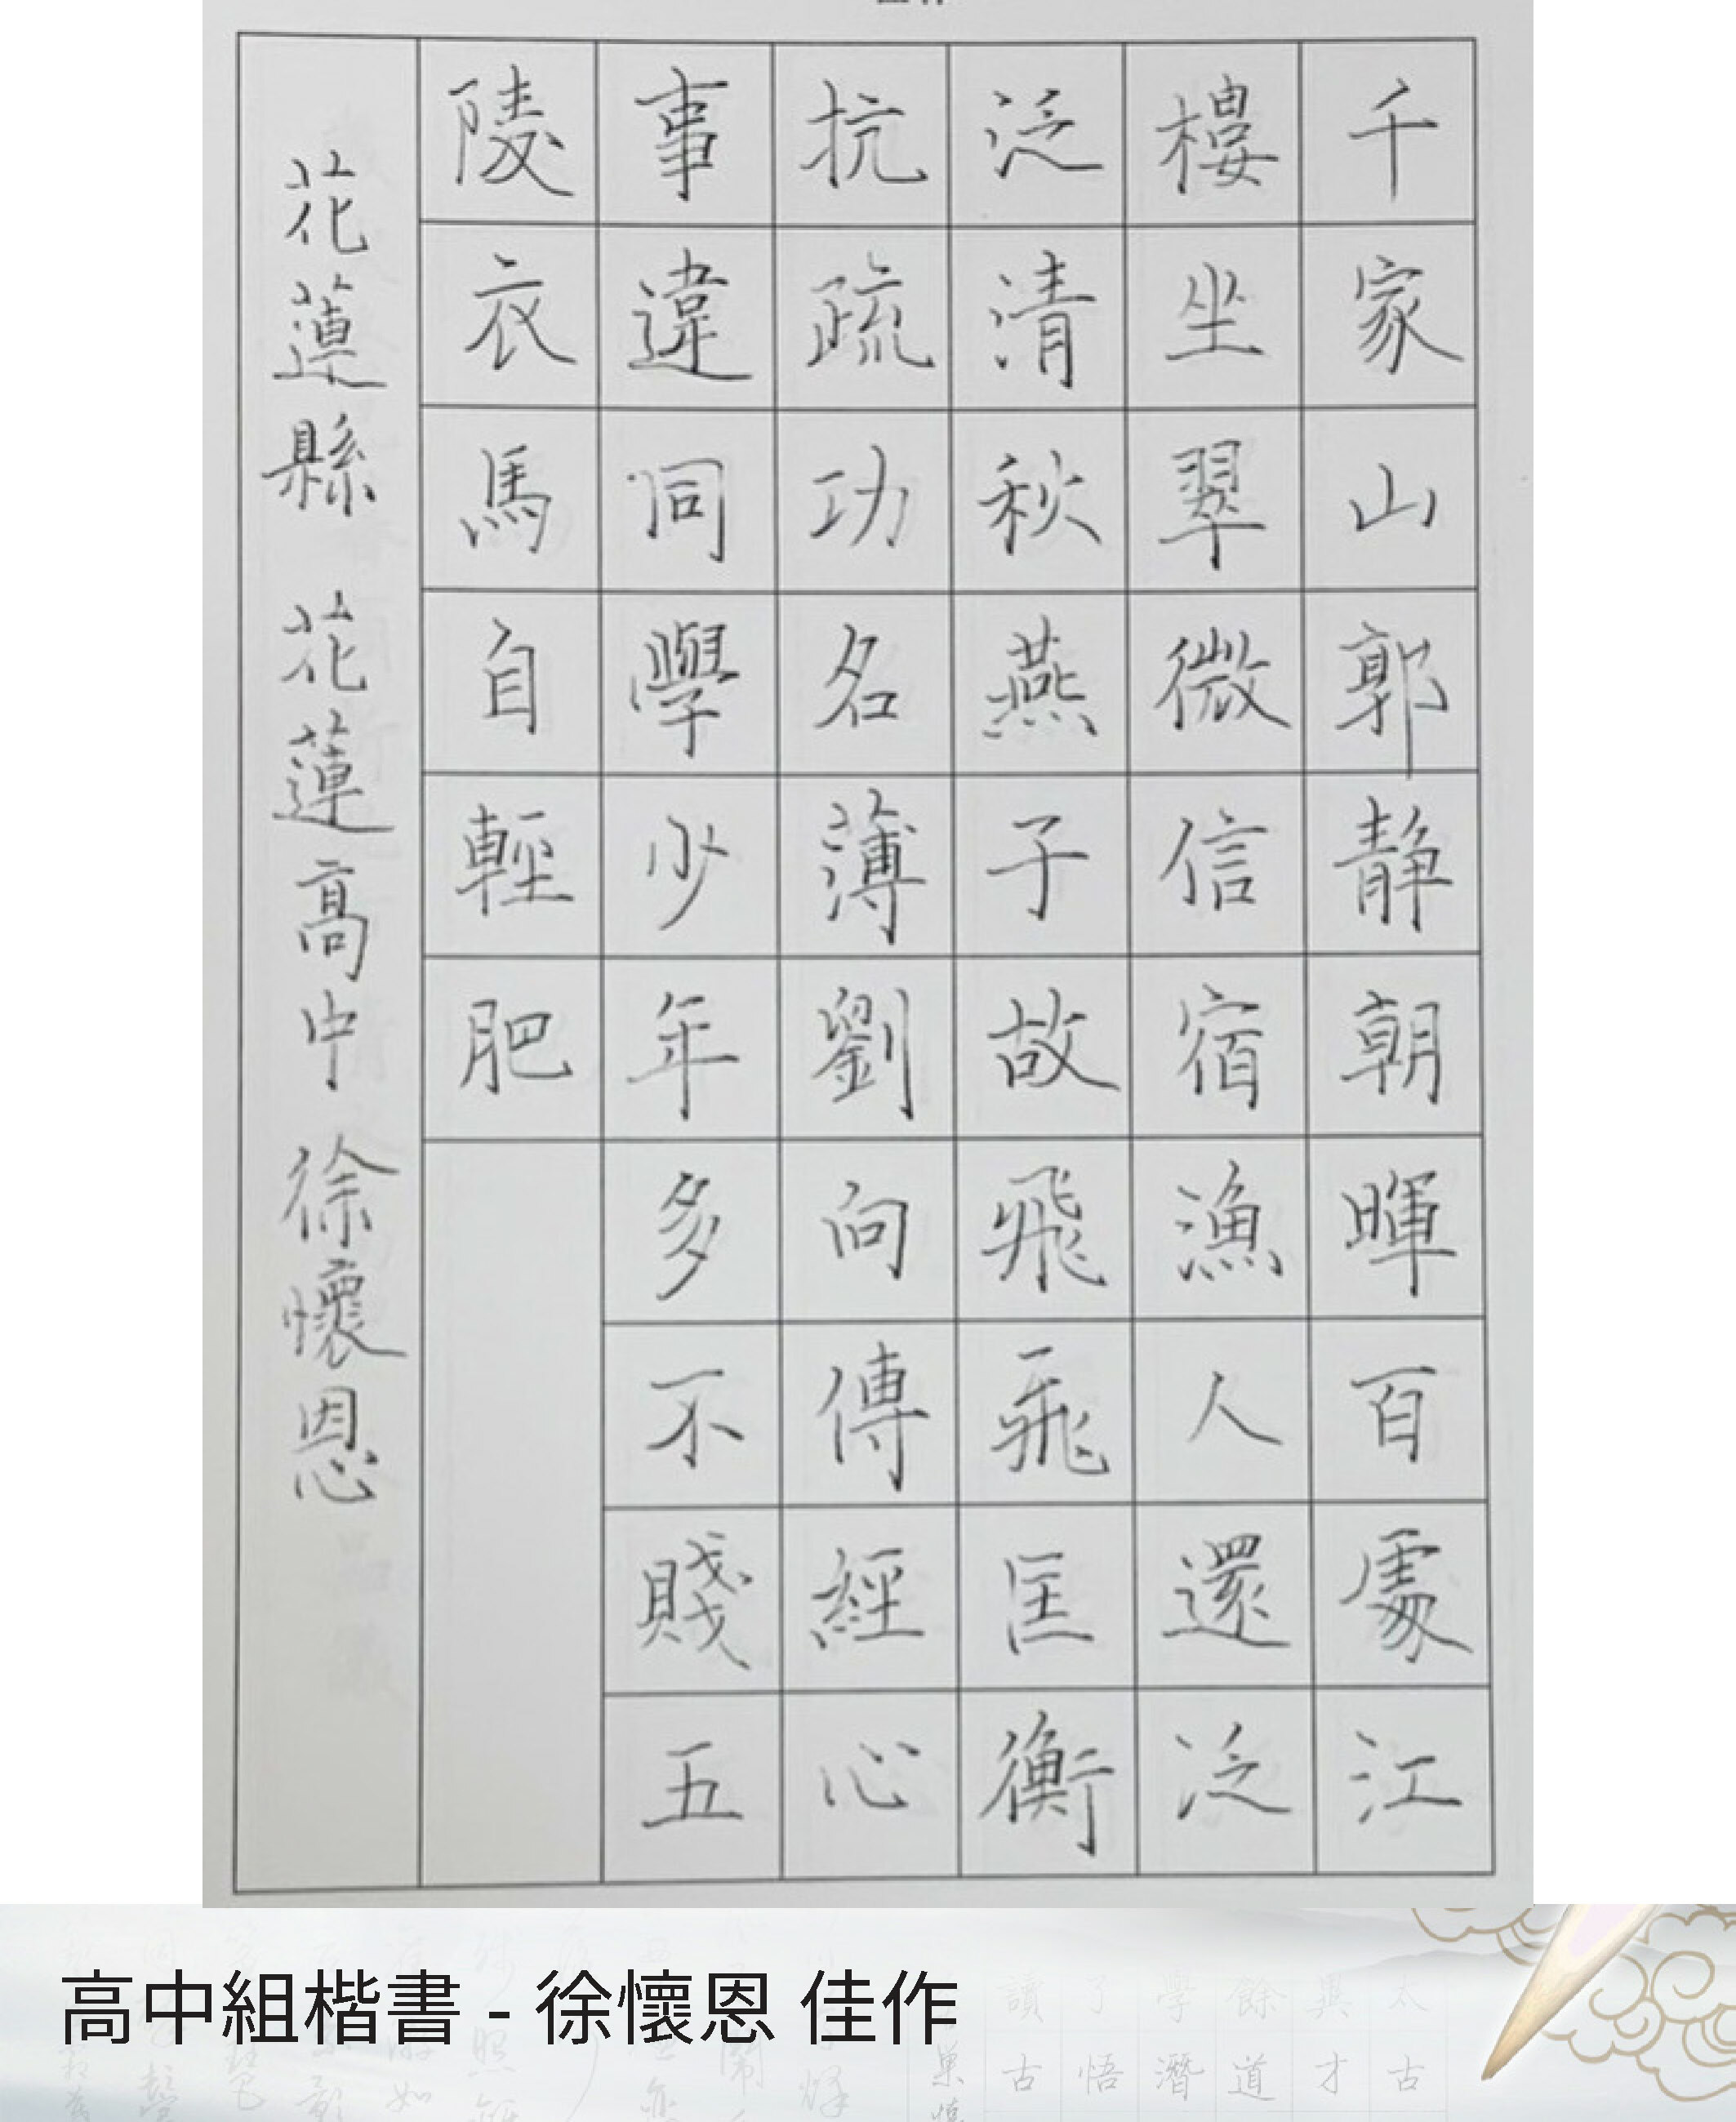 千家山郭静朝暉百處江
樓坐翠微信宿漁人還泛
泛清秋燕子故飛飛匡衡
抗疏功名薄劉向傳經心
事違同學少年多不賤五
陵衣馬自輕肥
花蓮縣 花蓮高中 徐懷恩
高中組楷書 - 徐懷恩 佳作